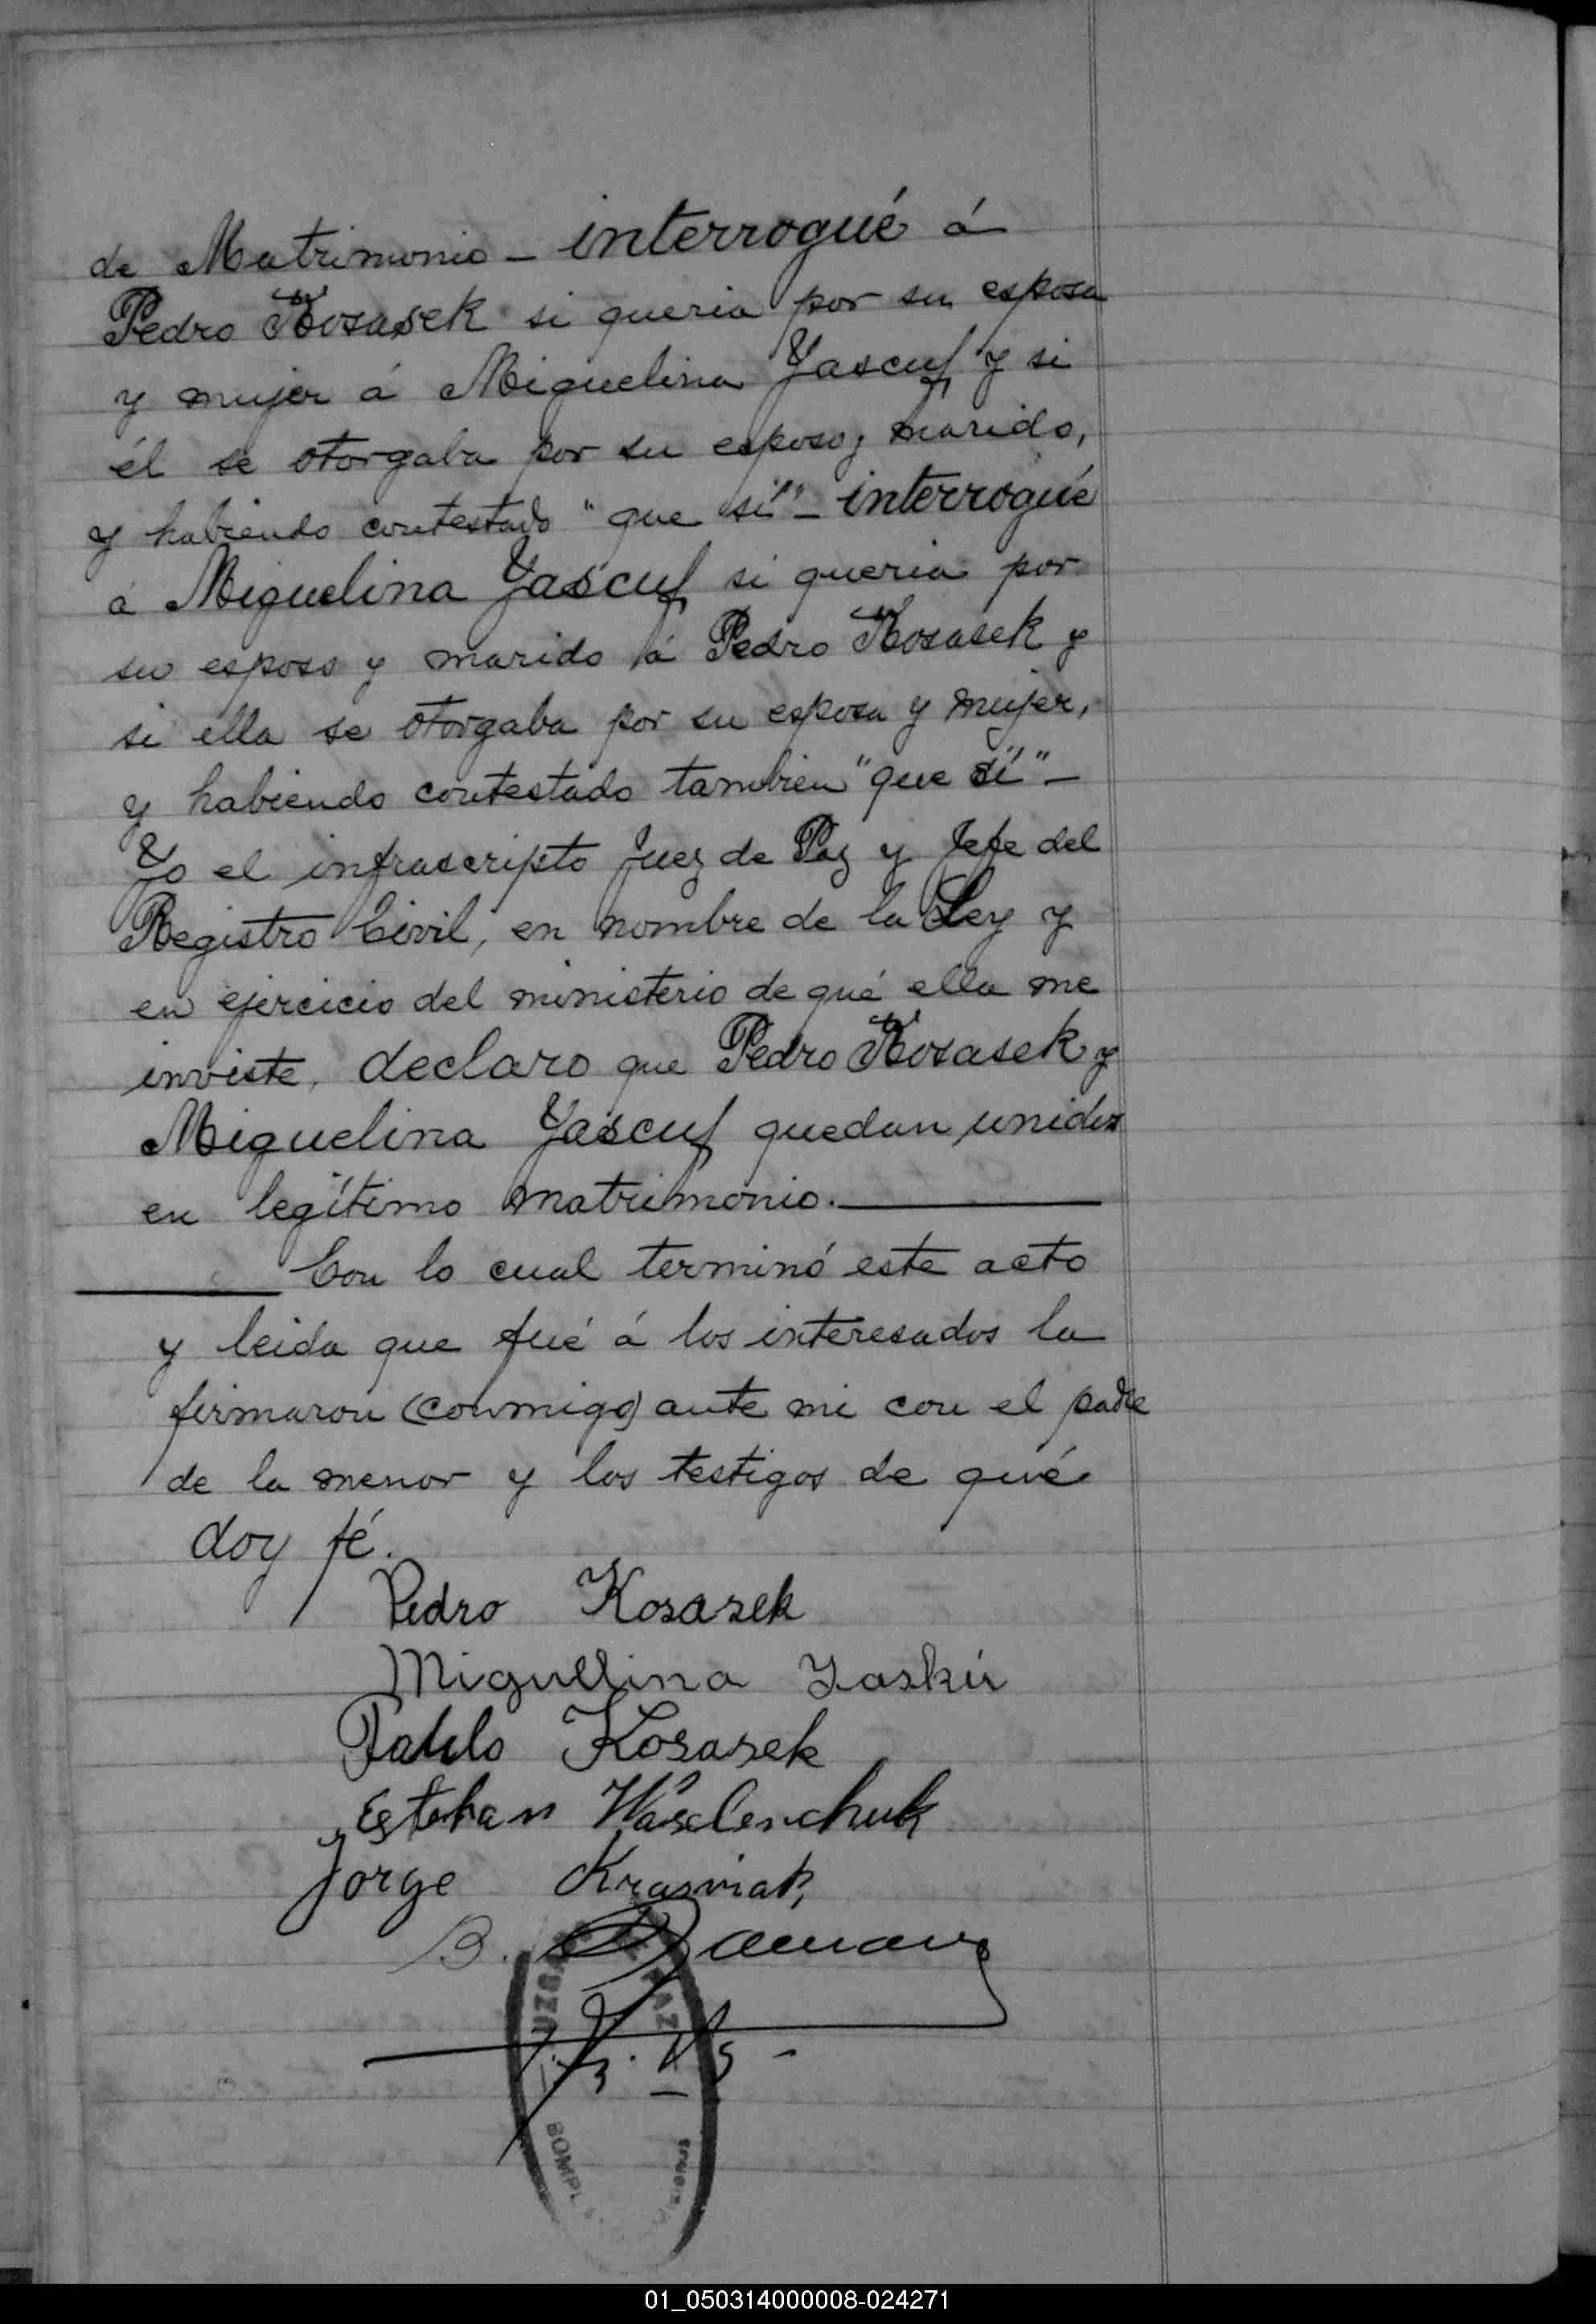 de Matrimonio - interrogué á
Pedro Kosasek si queria por su esposa
y mujer á Miguelina Yascuf y si
él se otorgaba por su esposo y marido,
y habiendo contestado "que sí" - interrogué
á Miguelina Yascuf si queria por
su esposo y marido á Pedro Kosasek y
si ella se otorgaba por su esposa y mujer,
y habiendo contestado tambien "que sí" -
Yo el infrascripto Juez de Paz y Jefe del
Registro Civil, en nombre de la Ley y
en ejercicio del ministerio de qué ella me
inviste, declaro que Pedro Kosasek y
Miguelina Yascuf quedan unidos
en legítimo matrimonio.
Con lo cual terminó este acto
y leida que fué á los interesados la
firmaron (conmigo) ante mi con el padre
de la menor y los testigos de qué
doy fé.
Pedro Kosasek
Miguelina Yaskú
Pablo Kosasek
Esteban Waselenchuk
Jorge Krasniak
B.
UZGA PAZ
J. P.
BOMPL
MISIONES
01_050314000008-024271